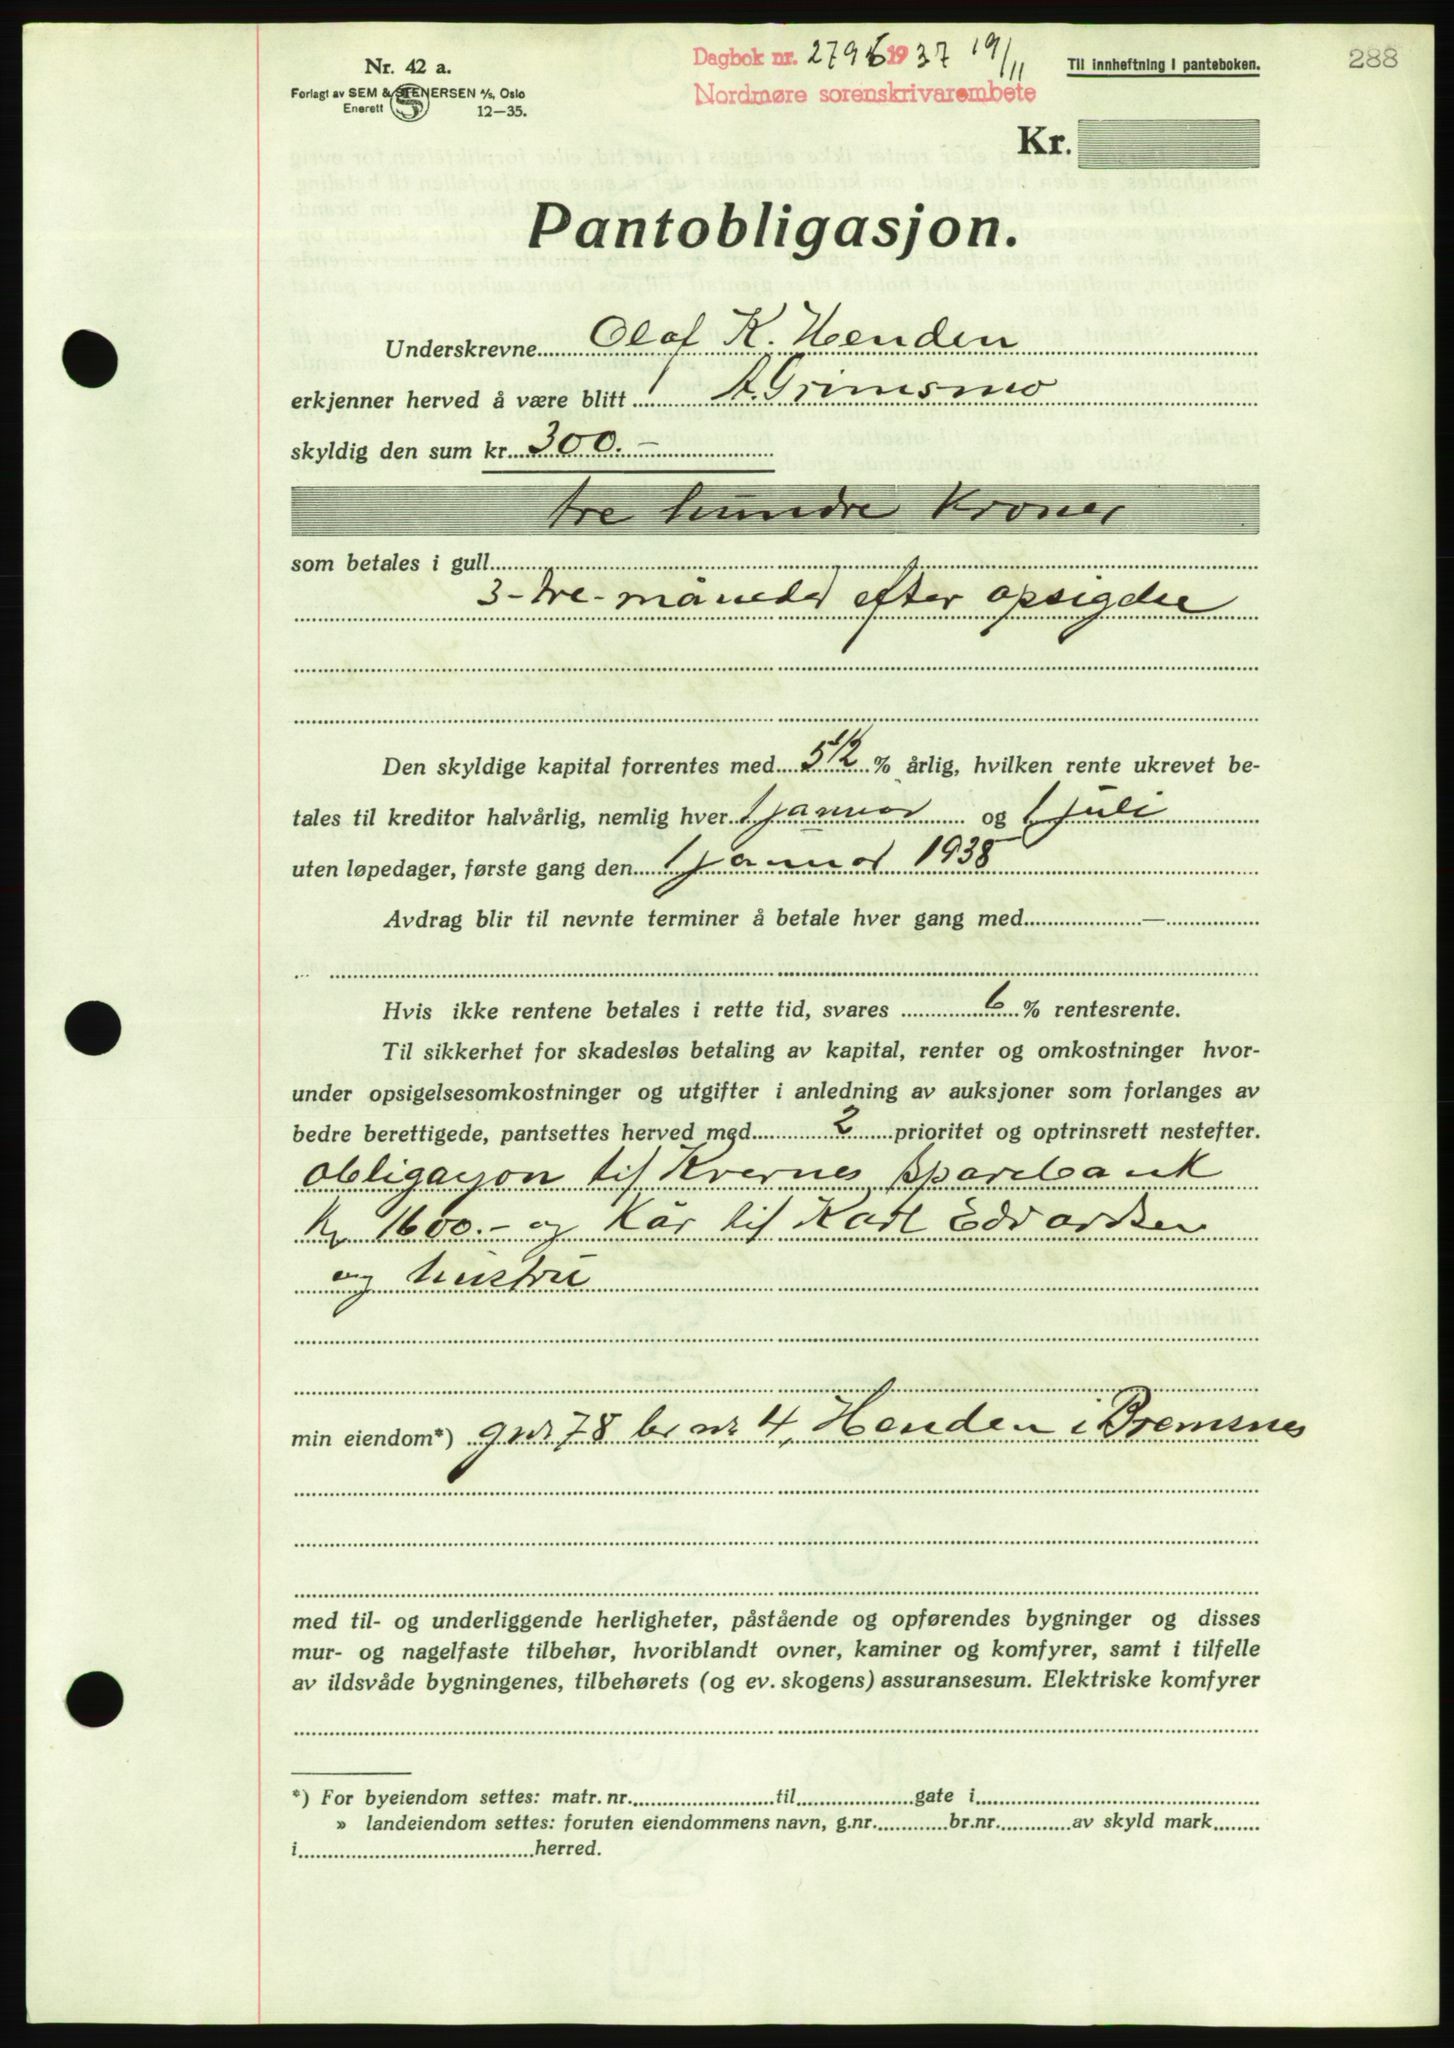 Nr. 42 a.
Forlagt av SEM & STENERSEN A/S, Oslo
Enerett 12-35.
Dagbok nr. 2796 1937 19/11
Nordmøre sorenskrivarembete
Til innheftning i panteboken.
288
Kr.
Pantobligasjon.
Underskrevne Olaf K. Henden
erkjenner herved å være blitt A. Grimsmo
skyldig den sum kr. 300.-
tre hundre kroner
som betales i gull
3-tre-måneder efter opsigelse
Den skyldige kapital forrentes med 5 1/2 % årlig, hvilken rente ukrevet be-
tales til kreditor halvårlig, nemlig hver 1 januar og 1 juli
uten løpedager, første gang den 1 januar 1938
Avdrag blir til nevnte terminer å betale hver gang med —
Hvis ikke rentene betales i rette tid, svares 6 % rentesrente.
Til sikkerhet for skadesløs betaling av kapital, renter og omkostninger hvor-
under opsigelsesomkostninger og utgifter i anledning av auksjoner som forlanges av
bedre berettigede, pantsettes herved med 2 prioritet og optrinsrett nestefter.
obligasjon til Kvernes sparebank
Kr 1600.- og Kår til Karl Edvardsen
og hustru
min eiendom*) gnr 78 br nr 4, Henden i Bremsnes
med til- og underliggende herligheter, påstående og opførendes bygninger og disses
mur- og nagelfaste tilbehør, hvoriblandt ovner, kaminer og komfyrer, samt i tilfelle
av ildsvåde bygningenes, tilbehørets (og ev. skogens) assuransesum. Elektriske komfyrer
*) For byeiendom settes: matr. nr. til gate i
» landeiendom settes: foruten eiendommens navn, g.nr. br.nr. av skyld mark
i herred.